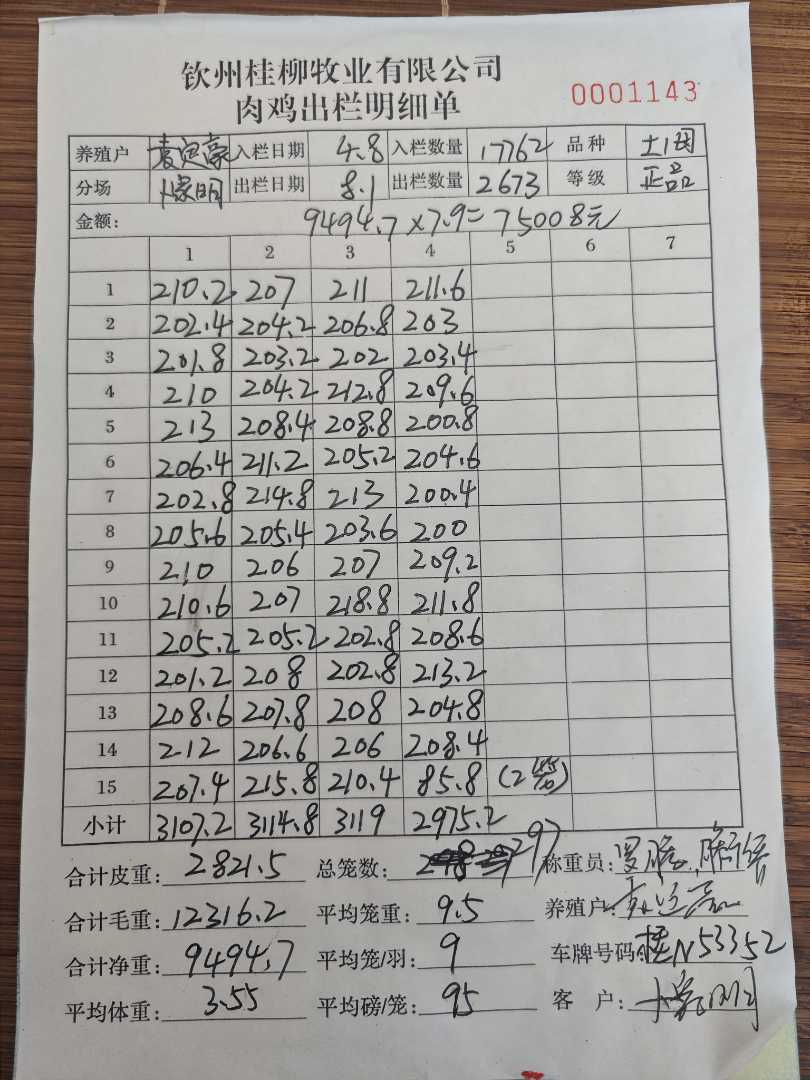 钦州桂柳牧业有限公司
肉鸡出栏明细单 0001143
养殖户 入栏日期 4.8 入栏数量 17762 品种 土1
分场 明 出栏日期 8.1 出栏数量 2673 等级 正品
金额: 9494.7×7.9=75008元
1 2 3 4 5 6 7
1 210.2 207 211 211.6
2 202.4 204.2 206.8 203
3 201.8 203.2 202 203.4
4 210 204.2 212.8 209.6
5 213 208.4 208.8 200.8
6 206.4 211.2 205.2 204.6
7 202.8 214.8 213 200.4
8 205.6 205.4 203.6 200
9 210 206 207 209.2
10 210.6 207 218.8 211.8
11 205.2 205.2 202.8 208.6
12 201.2 208 202.8 213.2
13 208.6 207.8 208 204.8
14 212 206.6 206 208.4
15 207.4 215.8 210.4 85.8 (2
小计 3107.2 3114.8 3119 2975.2
合计皮重: 2821.5 总笼数: 297 称重员:
合计毛重: 12316.2 平均笼重: 9.5 养殖户:
合计净重: 9494.7 平均笼/羽: 9 车牌号码: 桂N53352
平均体重: 3.55 平均磅/笼: 95 客户: